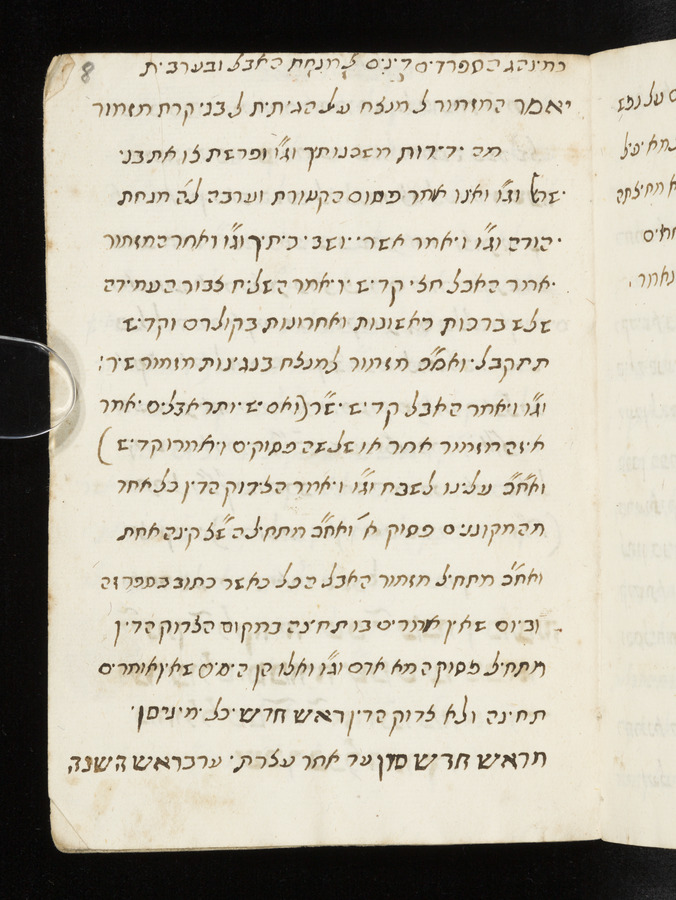 8
כמינהג הספרדים דינים למנחת האבל ובערבית
יאמר המזמור למנצח על הגיתית לבני קרח מזמור
מה ידידות משכנותיך וגו' ופרשת זו את בני
וגו' ואנו אחר פטום הקטורת וערבה לה' מנחת
יהודה וגו' ויאמר אשרי יושבי ביתיך וגו' ואחר המזמור
יאמר האבל חצי קדיש ויאמר השליח צבור העמידה
שלש ברכות ראשונות ואחרונות בקולרם וקדיש
תתקבל ואח"כ מזמור למנצח בנגינות מזמור שיר
וגו' ויאמר האבל קדיש (ואם יש יותר אבלים יאמר
איזה מזמור אחר או שלשה פסוקים ויאמרו קדיש)
ואח"כ עלינו לשבח וגו' ויאמר הצידוק הדין כל אחד
מהמקוננים פסיק א' ואח"כ מתחיל הש"ץ קינה אחת
ואח"כ מתחיל מזמור האבל הכל כאשר כתוב בספר זה
וביום שאין אומרים בו תחינה במקום הצדוק הדין
מתחיל פסוק המא אדם וגו' ואלו הן הימים שאין אומרים
תחינה ולא צדוק הדין ראש חדש כל ימי ניסן
מראש חדש סיון עד אחר עצרת ערב ראש השנה